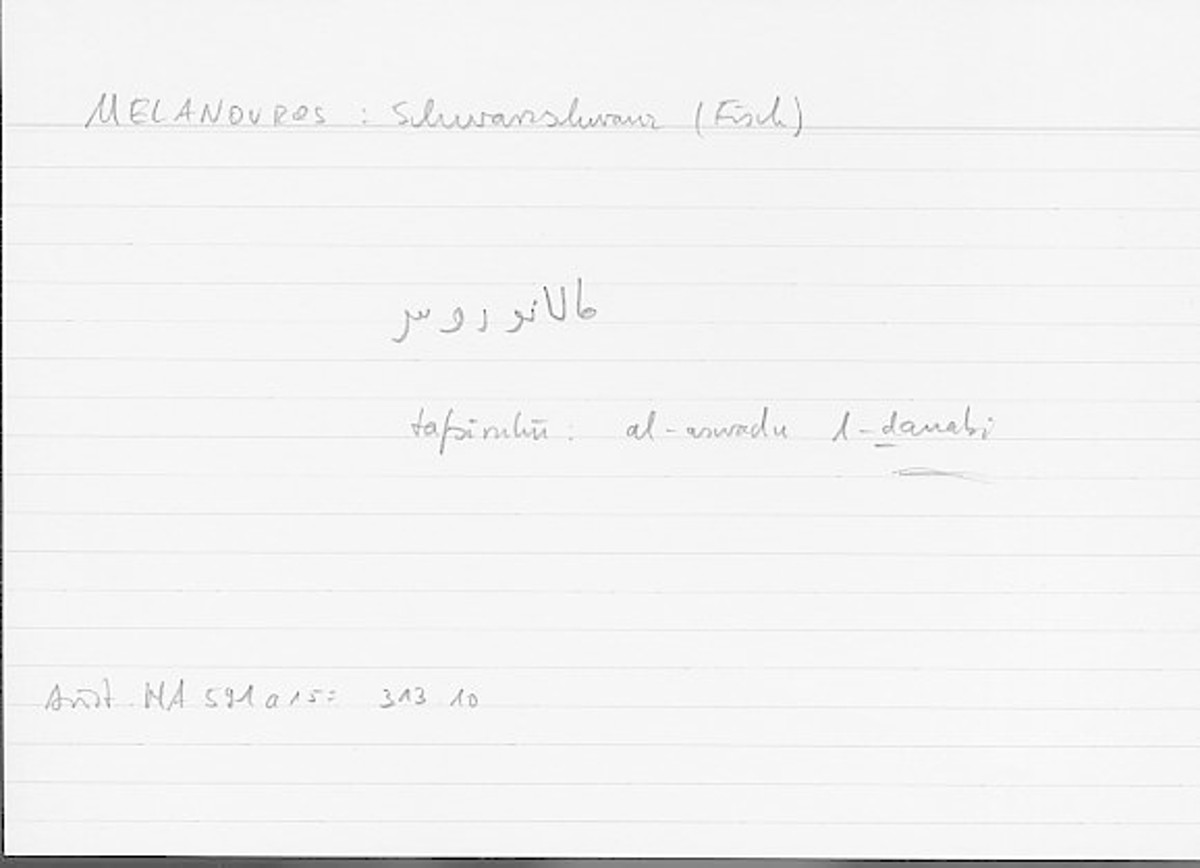 MELANOUROS : Schwarzschwanz (Fisch)
مالانوروس
tafsīruhū : al-aswadu l-ḏanabi
Arist. HA 591 a 15 = 313 10